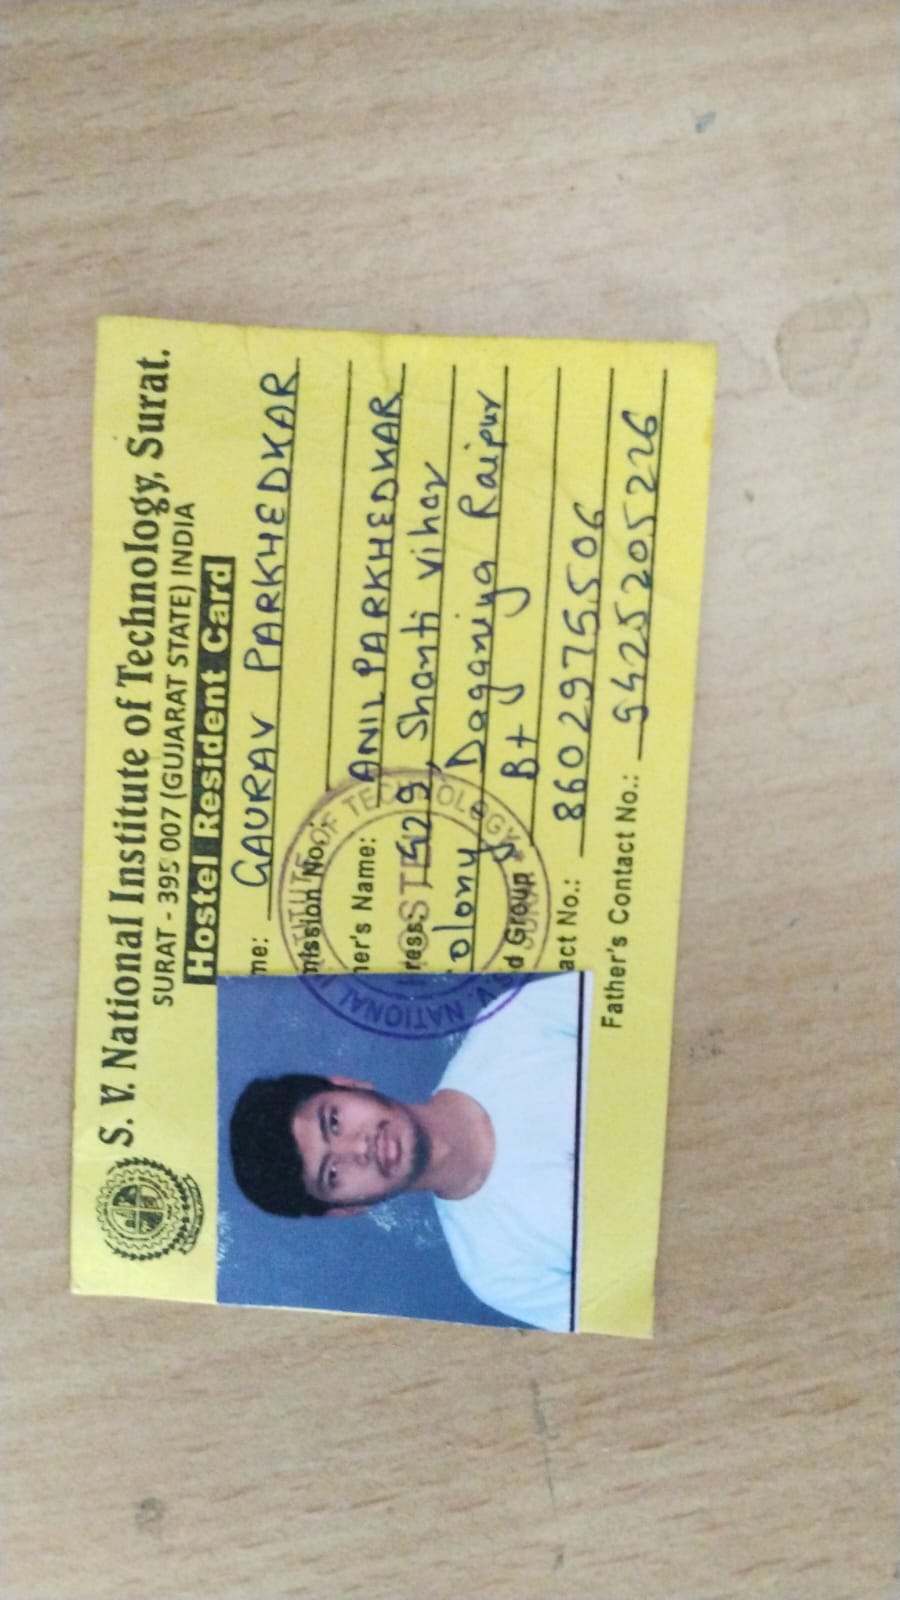 S. V. National Institute of Technology, Surat.
SURAT - 395 007 (GUJARAT STATE) INDIA
Hostel Resident Card
me: GAURAV PARKHEDKAR
mission No.:
her's Name: ANIL PARKHEDKAR
ress: 429, Shanti Vihar
olony, Daganiya Raipur
d Group B+
act No.: 8602975506
Father's Contact No.: 9425205226
S.V. NATIONAL INSTITUTE OF TECHNOLOGY
HOSTEL
SURAT